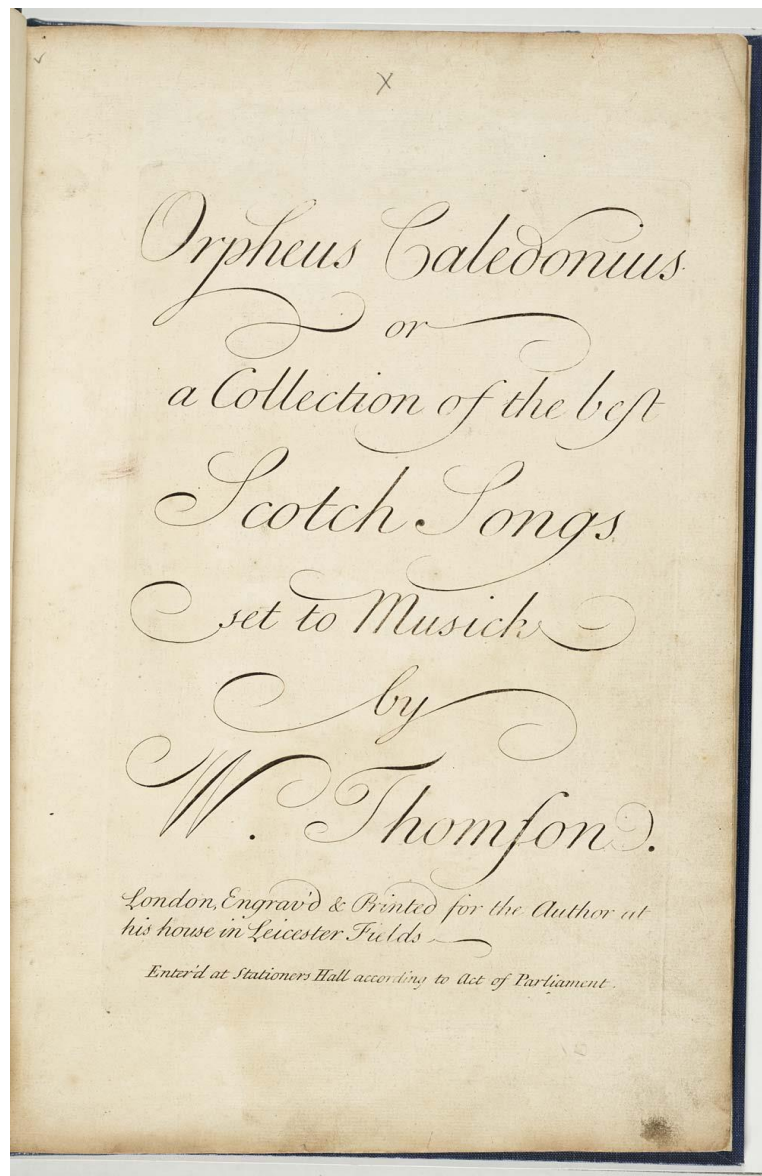 Orpheus Caledonius
or
a Collection of the best
Scotch Songs
set to Musick
by
W. Thomſon.
London, Engrav'd & Printed for the Author at
his house in Leicester Fields
Enter'd at Stationers Hall according to Act of Parliament.